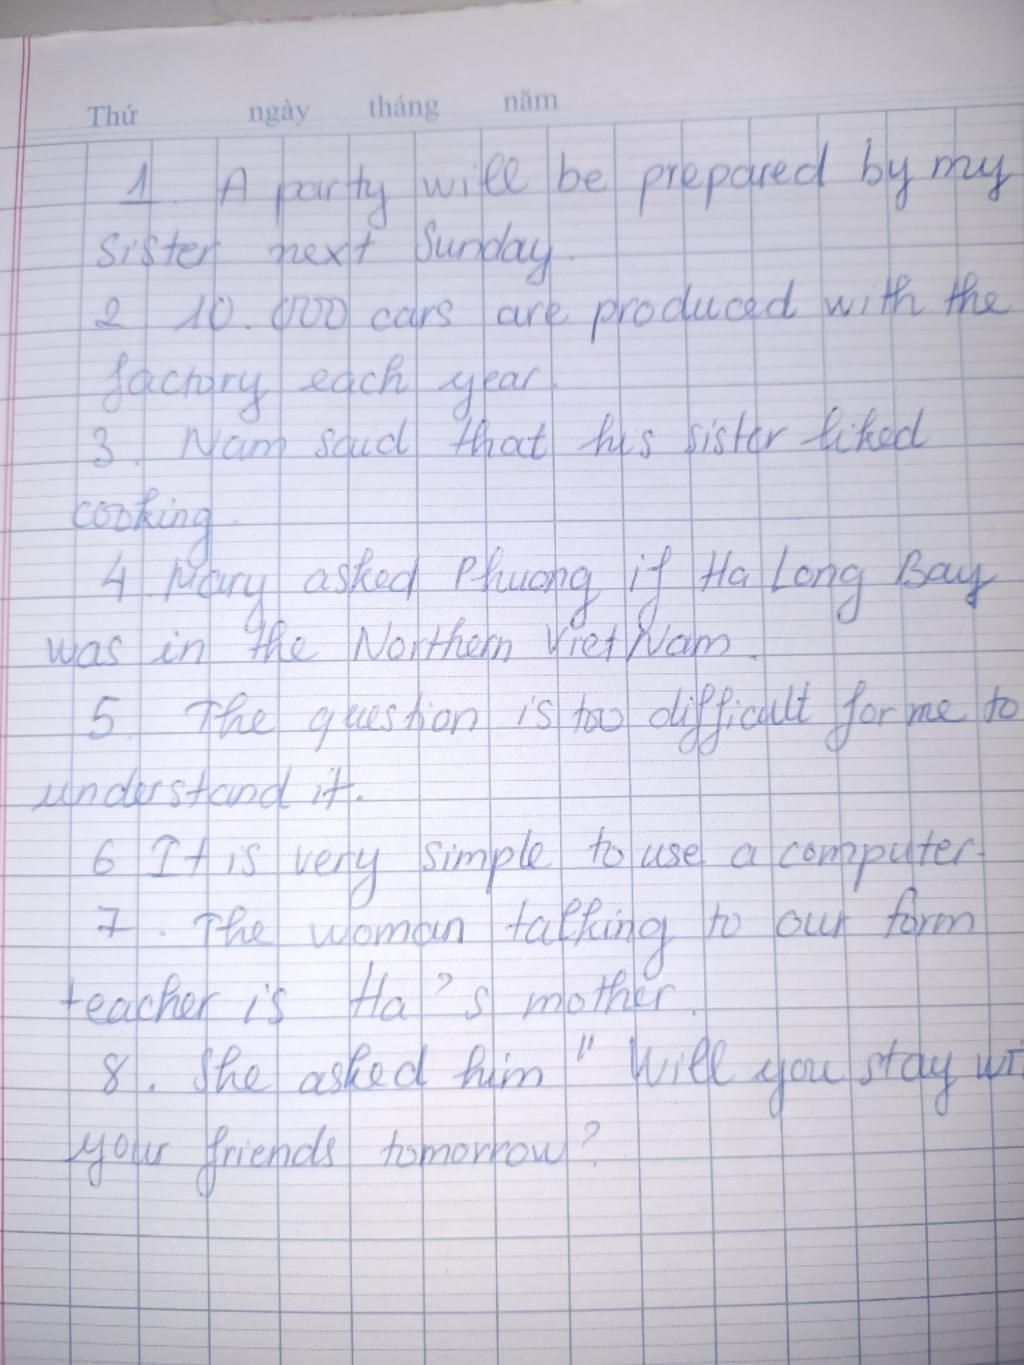 Thứ ngày tháng năm
1. A party will be prepared by my
sister next Sunday.
2 10.000 cars are produced with the
factory each year.
3. Nam said that his sister liked
cooking.
4 Mary asked Phuong if Ha Long Bay
was in the Northern Viet Nam.
5. The question is too difficult for me to
understand it.
6 It is very simple to use a computer.
7. The woman talking to our form
teacher is Ha's mother.
8. She asked him " Will you stay wi
your friends tomorrow?